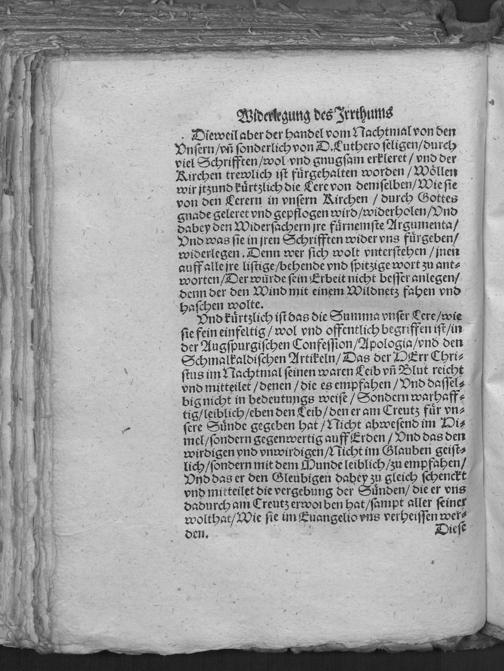 Widerlegung des Jrrthums
Dieweil aber der handel vom Nachtmal von den
Vnsern/vñ sonderlich von D. Luthero seligen/durch
viel Schrifften/wol vnd gnugsam erkleret/vnd der
Kirchen trewlich ist fürgehalten worden/Wöllen
wir jtzund kürtzlich die Lere von demselben/Wie sie
von den Lerern in vnsern Kirchen/durch Gottes
gnade geleret vnd gepflogen wird/widerholen/Vnd
dabey den Widersachern jre fürnemste Argumenta/
Vnd was sie in jren Schrifften wider vns fürgeben/
widerlegen. Denn wer sich wolt vnterstehen/jnen
auff alle jre listige/behende vnd spitzige wort zu ant-
worten/Der würde sein Erbeit nicht besser anlegen/
denn der den Wind mit einem Wildnetz fahen vnd
haschen wolte.
Vnd kürtzlich ist das die Summa vnser Lere/wie
sie fein einfeltig/wol vnd offentlich begriffen ist/in
der Augspurgischen Confession/Apologia/vnd den
Schmalkaldischen Artikeln/Das der HErr Chri-
stus im Nachtmal seinen waren Leib vñ Blut reicht
vnd mitteilet/denen/die es empfahen/Vnd dassel-
big nicht in bedeutungs weise/Sondern warhaff-
tig/leiblich/eben den Leib/den er am Creutz für vn-
sere Sünde gegeben hat/Nicht abwesend im Hi-
mel/sondern gegenwertig auff Erden/Vnd das den
wirdigen vnd vnwirdigen/Nicht im Glauben geist-
lich/sondern mit dem Munde leiblich/zu empfahen/
Vnd das er den Gleubigen dabey zu gleich schenckt
vnd mitteilet die vergebung der Sünden/die er vns
dadurch am Creutz erworben hat/sampt aller seiner
wolthat/Wie sie im Euangelio vns verheissen wer-
den.
Diese